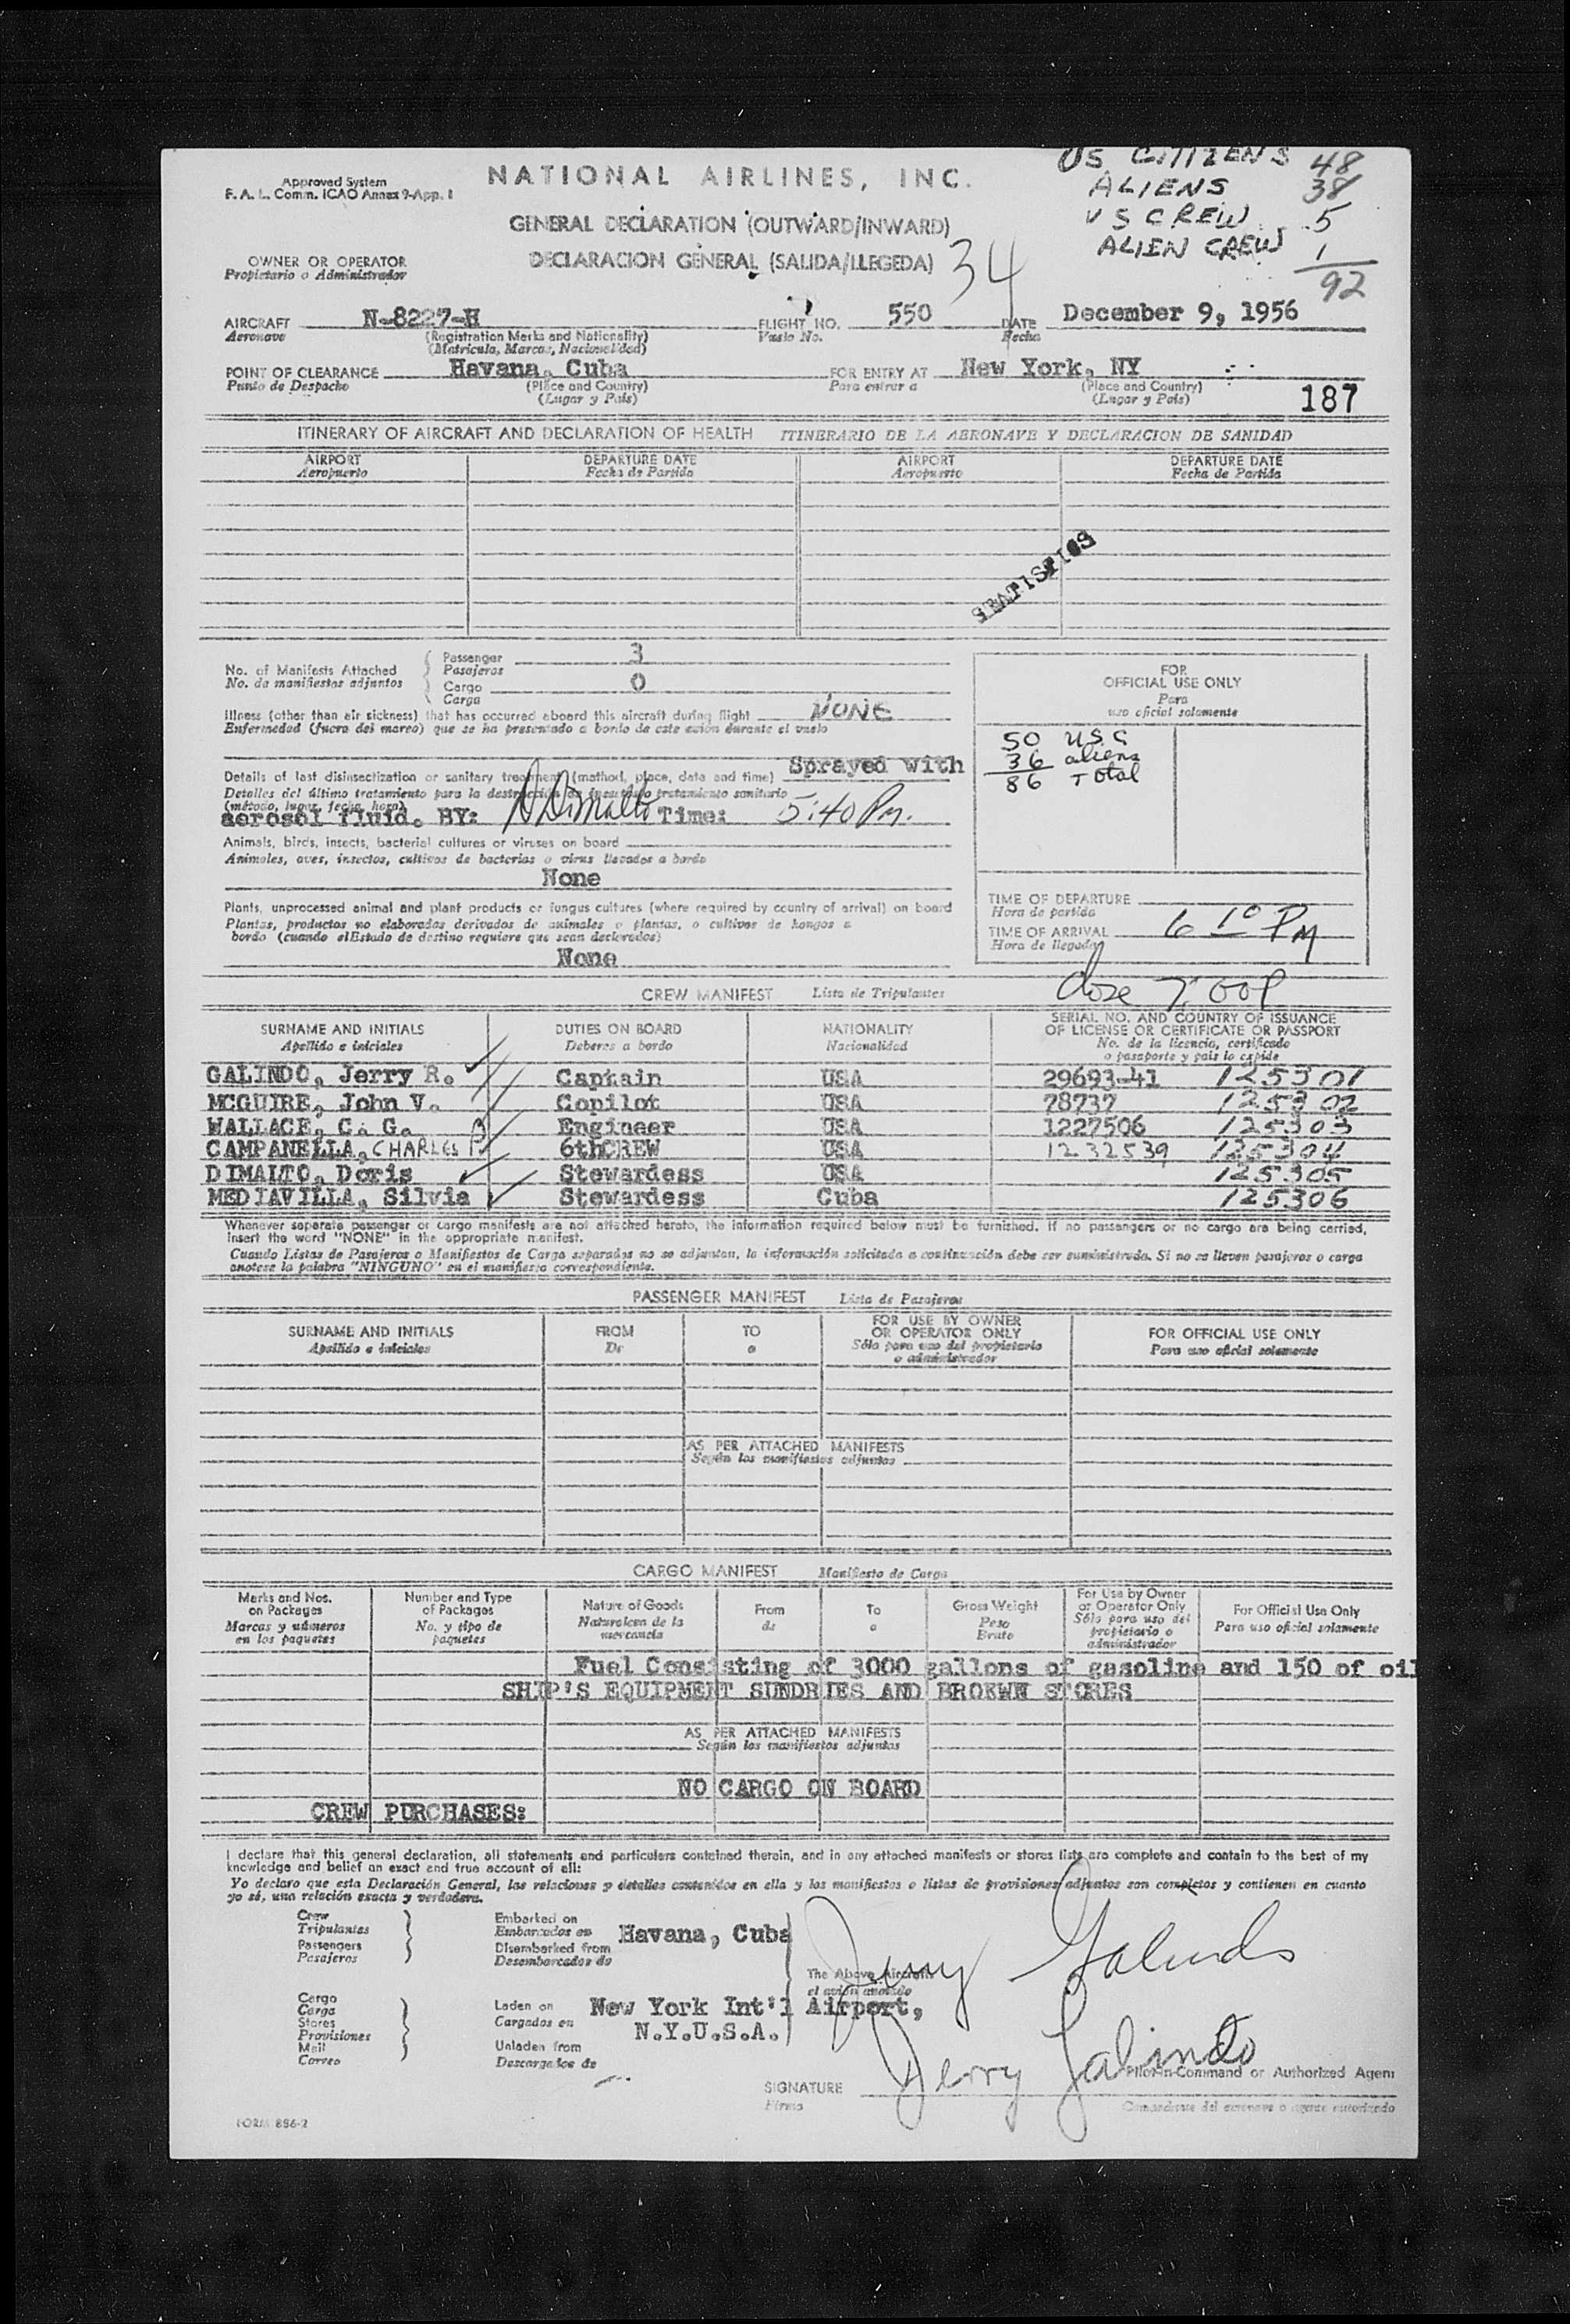 US CITIZENS 48
ALIENS 38
US CREW 5
ALIEN CREW 1
92
Approved System
F. A. L. Comm. ICAO Annex 9-App. 1
NATIONAL AIRLINES, INC.
GENERAL DECLARATION (OUTWARD/INWARD)
DECLARACION GENERAL (SALIDA/LLEGEDA)
34
OWNER OR OPERATOR
Propietario o Administrador
AIRCRAFT N-8227-H FLIGHT NO. 550 DATE December 9, 1956
Aeronave (Registration Marks and Nationality) Vuelo No. Fecha
(Matricula, Marcas, Nacionalidad)
POINT OF CLEARANCE Havana, Cuba FOR ENTRY AT New York, NY
Punto de Despacho (Place and Country) Para entrar a (Place and Country)
(Lugar y Pais) (Lugar y Pais)
187
ITINERARY OF AIRCRAFT AND DECLARATION OF HEALTH ITINERARIO DE LA AERONAVE Y DECLARACION DE SANIDAD
AIRPORT DEPARTURE DATE AIRPORT DEPARTURE DATE
Aeropuerto Fecha de Partida Aeropuerto Fecha de Partida
STATISTICS
No. of Manifests Attached Passenger 3
No. de manifiestos adjuntos Pasajeros
Cargo 0
Carga
Illness (other than air sickness) that has occurred aboard this aircraft during flight NONE
Enfermedad (fuera del mareo) que se ha presentado a bordo de este avión durante el vuelo
Details of last disinsectization or sanitary treatment (method, place, date and time) Sprayed with
Detalles del último tratamiento para la destrucción de insectos o tratamiento sanitario
(método, lugar, fecha, hora)
aerosol fluid. BY: D Dimalto Time: 5:40 Pm.
Animals, birds, insects, bacterial cultures or viruses on board
Animales, aves, insectos, cultivos de bacterias o virus llevados a bordo
None
Plants, unprocessed animal and plant products or fungus cultures (where required by country of arrival) on board
Plantas, productos no elaborados derivados de animales o plantas, o cultivos de hongos a
bordo (cuando el Estado de destino requiere que sean declarados)
None
FOR
OFFICIAL USE ONLY
Para
uso oficial solamente
50 U.S.C
36 aliens
86 Total
TIME OF DEPARTURE
Hora de partida
TIME OF ARRIVAL 6 10 PM
Hora de llegada
Close 7:00P
CREW MANIFEST Lista de Tripulantes
SURNAME AND INITIALS DUTIES ON BOARD NATIONALITY SERIAL NO. AND COUNTRY OF ISSUANCE
OF LICENSE OR CERTIFICATE OR PASSPORT
Apellido e iniciales Deberes a bordo Nacionalidad No. de la licencia, certificado
o pasaporte y pais lo expide
GALINDO, Jerry R. Captain USA 29693-41 125301
MCGUIRE, John V. Copilot USA 78737 125302
WALLACE, C. G. Engineer USA 1227506 125303
CAMPANELLA, CHARLES P 6thCREW USA 1232539 125304
DIMALTO, Doris Stewardess USA 125305
MEDIAVILLA, Silvia Stewardess Cuba 125306
Whenever separate passenger or cargo manifests are not attached hereto, the information required below must be furnished. If no passengers or no cargo are being carried,
insert the word "NONE" in the appropriate manifest.
Cuando Listas de Pasajeros o Manifiestos de Carga separados no se adjuntan, la información solicitada a continuación debe ser suministrada. Si no se lleven pasajeros o carga
anotese la palabra "NINGUNO" en el manifiesto correspondiente.
PASSENGER MANIFEST Lista de Pasajeros
SURNAME AND INITIALS FROM TO FOR USE BY OWNER
OR OPERATOR ONLY FOR OFFICIAL USE ONLY
Apellido e iniciales De a Sólo para uso del propietario
o administrador Para uso oficial solamente
AS PER ATTACHED MANIFESTS
Según los manifiestos adjuntos
CARGO MANIFEST Manifiesto de Carga
Marks and Nos.
on Packages
Marcas y números
en los paquetes
Number and Type
of Packages
No. y tipo de
paquetes
Nature of Goods
Naturaleza de la
mercancía
From
de
To
a
Gross Weight
Peso
Bruto
For Use by Owner
or Operator Only
Sólo para uso del
propietario o
administrador
For Official Use Only
Para uso oficial solamente
Fuel Consisting of 3000 gallons of gasoline and 150 of oil
SHIP'S EQUIPMENT SUNDRIES AND BROEWN STORES
AS PER ATTACHED MANIFESTS
Según los manifiestos adjuntos
NO CARGO ON BOARD
CREW PURCHASES:
I declare that this general declaration, all statements and particulars contained therein, and in any attached manifests or stores lists are complete and contain to the best of my
knowledge and belief an exact and true account of all:
Yo declaro que esta Declaración General, las relaciones y detalles contenidos en ella y los manifiestos o listas de provisiones adjuntos son completos y contienen en cuanto
yo sé, una relación exacta y verdadera.
Crew
Tripulantes
Passengers
Pasajeros
Embarked on
Embarcados en
Disembarked from
Desembarcados de
Havana, Cuba
Jerry Galindo
The Above Aircraft
el avión anotado
Cargo
Carga
Stores
Provisiones
Mail
Correo
Laden on
Cargados en
Unladen from
Descargados de
New York Int'l Airport,
N.Y.U.S.A.
Jerry Galindo
SIGNATURE Pilot-in-Command or Authorized Agent
Firma Comandante del aeronave o agente autorizado
FORM 886-2